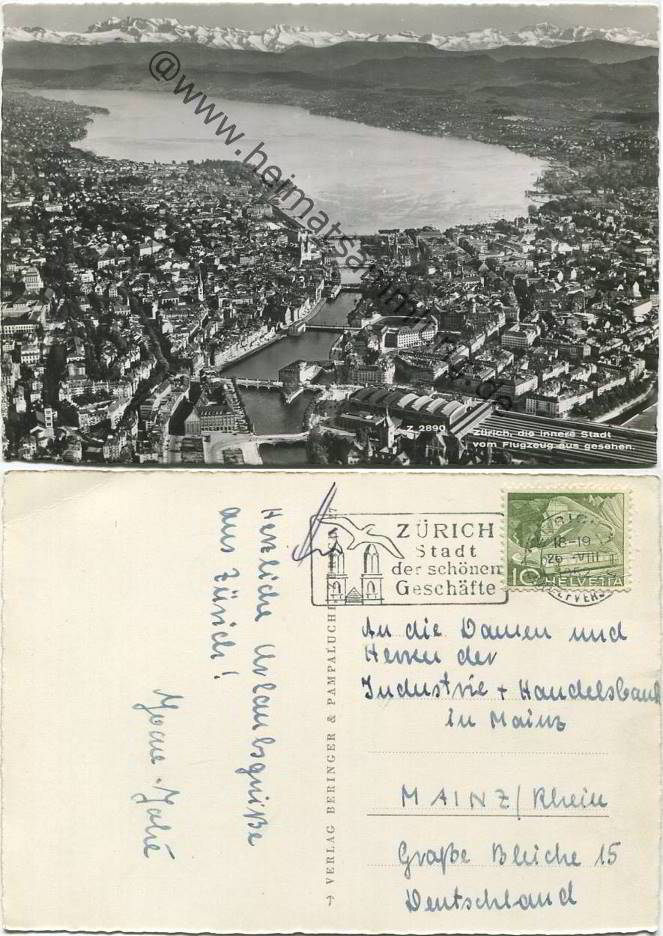 @www.heimatsammlung.de
Z 2890
Zürich, die innere Stadt
vom Flugzeug aus gesehen.
Herzliche Urlaubsgrüße
aus Zürich!
VERLAG BERINGER & PAMPALUCHI
ZÜRICH
Stadt
der schönen
Geschäfte
18-19
VIII
10 HELVETIA
An die Damen und
Herren der
Industrie + Handelsbank
in Mainz
MAINZ/Rhein
Große Bleiche 15
Deutschland